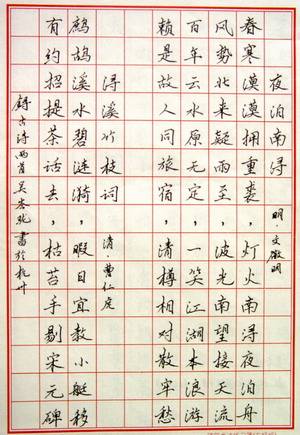 夜泊南浔 明·文徵明
春寒漠漠拥重裘，灯火南浔夜泊舟
风势北来疑雨至，波光南望接天流
百年云水原无定，一笑江湖本浪游
赖是故人同旅宿，清樽相对散牢愁
浔溪竹枝词 清·曹仁虎
鹧鸪溪水碧涟漪，暇日宜教小艇移
有约招提茶话去，枯苔手剔宋元碑
古诗两首 吴 书於杭州